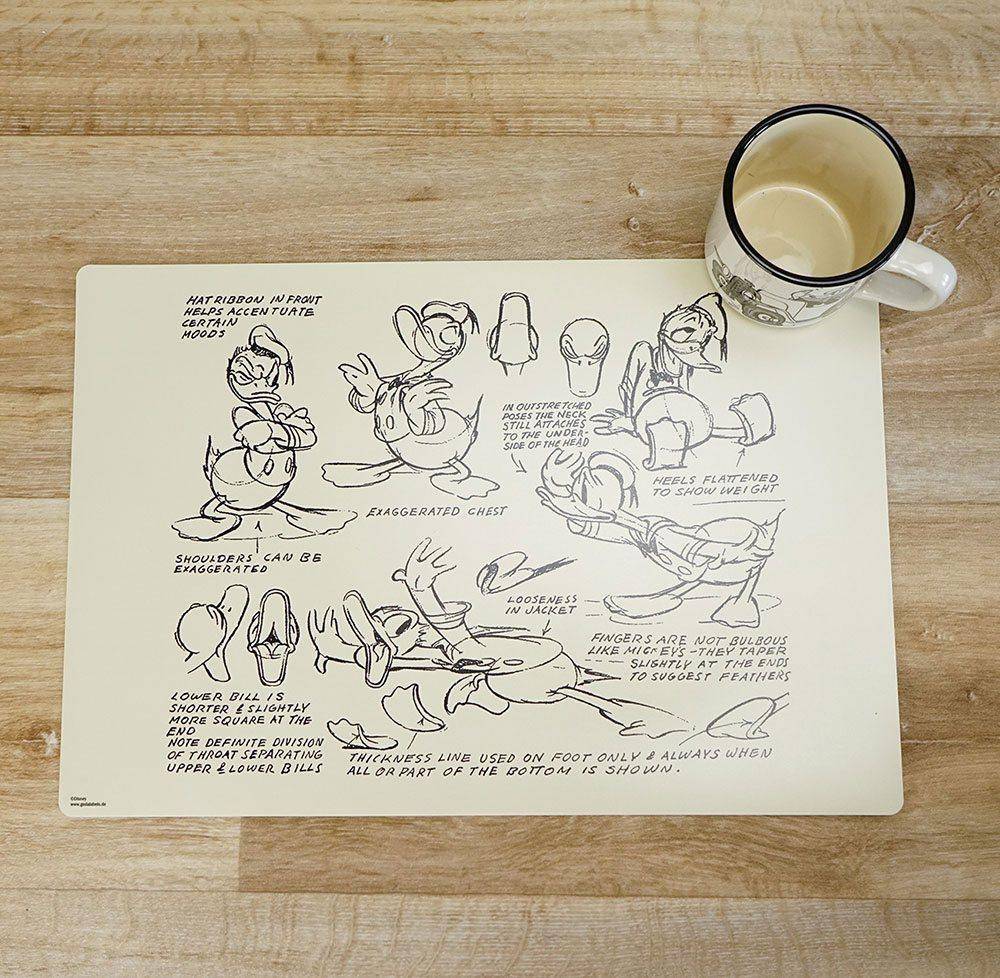 HAT RIBBON IN FRONT
HELPS ACCENTUATE
CERTAIN
MOODS
IN OUTSTRETCHED
POSES THE NECK
STILL ATTACHES
TO THE UNDER-
SIDE OF THE HEAD
HEELS FLATTENED
TO SHOW WEIGHT
EXAGGERATED CHEST
SHOULDERS CAN BE
EXAGGERATED
LOOSENESS
IN JACKET
FINGERS ARE NOT BULBOUS
LIKE MICKEY'S - THEY TAPER
SLIGHTLY AT THE ENDS
TO SUGGEST FEATHERS
LOWER BILL IS
SHORTER & SLIGHTLY
MORE SQUARE AT THE
END
NOTE DEFINITE DIVISION
OF THROAT SEPARATING
UPPER & LOWER BILLS
THICKNESS LINE USED ON FOOT ONLY & ALWAYS WHEN
ALL OR PART OF THE BOTTOM IS SHOWN.
©Disney